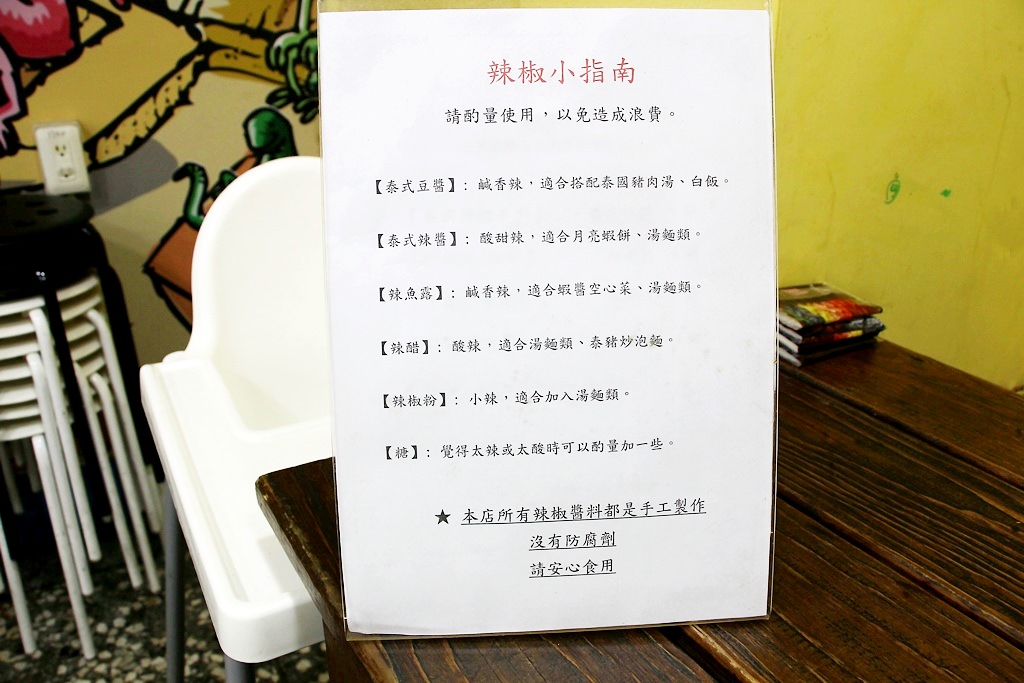 辣椒小指南
請酌量使用，以免造成浪費。
【泰式豆醬】: 鹹香辣，適合搭配泰國豬肉湯、白飯。
【泰式辣醬】: 酸甜辣，適合月亮蝦餅、湯麵類。
【辣魚露】: 鹹香辣，適合蝦醬空心菜、湯麵類。
【辣醋】: 酸辣，適合湯麵類、泰豬炒泡麵。
【辣椒粉】: 小辣，適合加入湯麵類。
【糖】: 覺得太辣或太酸時可以酌量加一些。
★ 本店所有辣椒醬料都是手工製作
沒有防腐劑
請安心食用